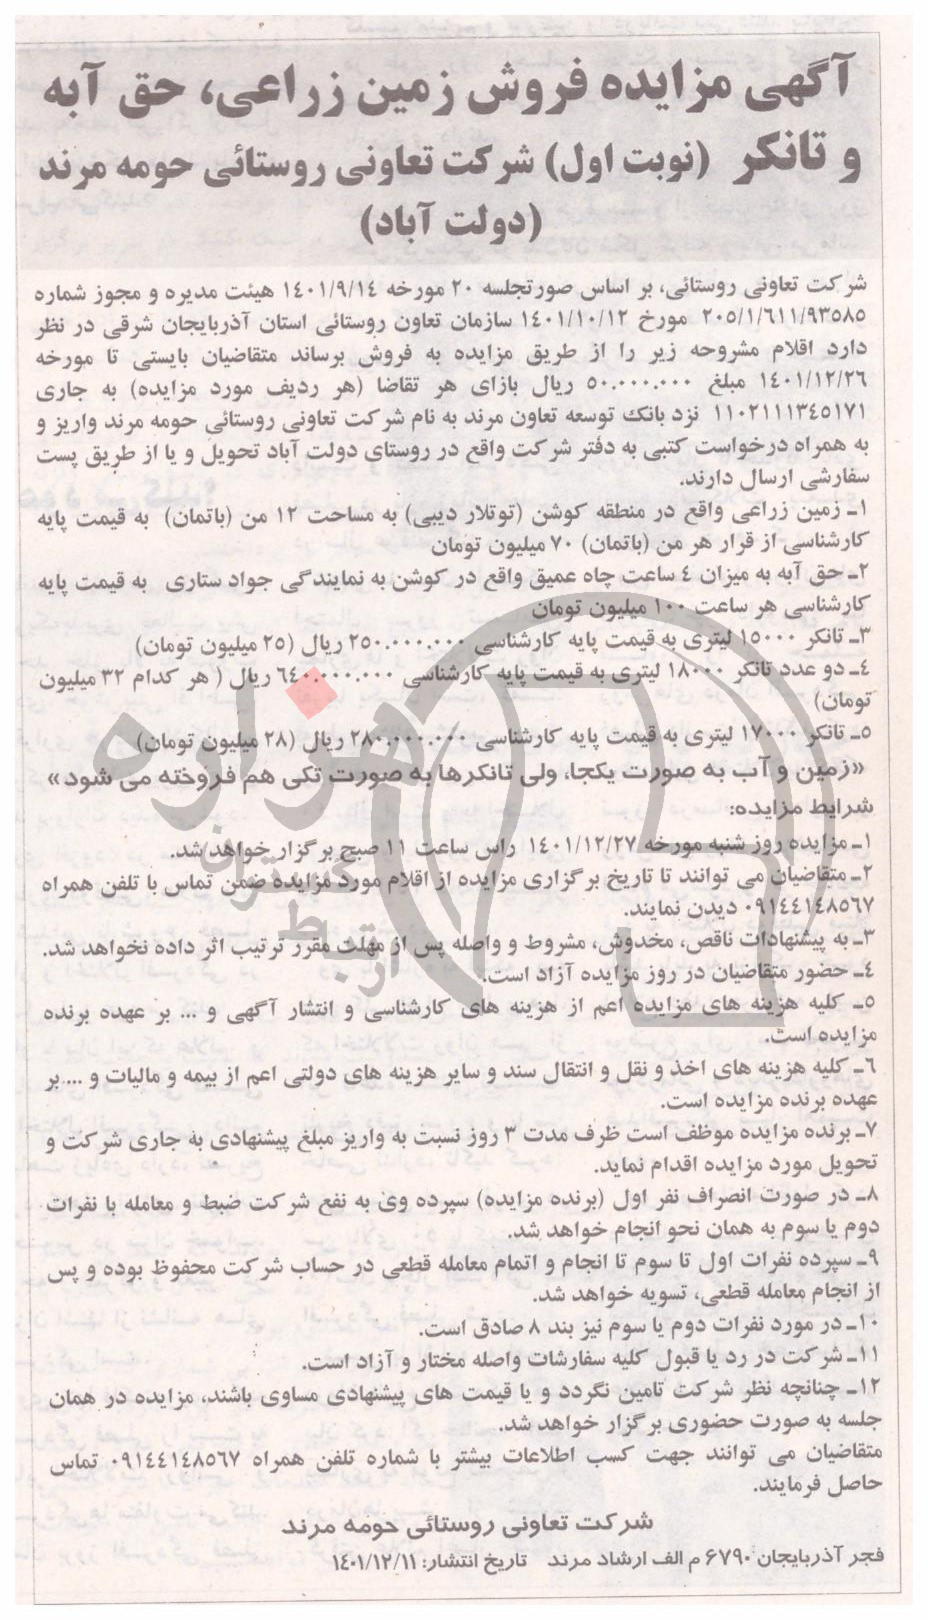 آگهی مزایده فروش زمین زراعی، حق آبه
و تانکر (نوبت اول) شرکت تعاونی روستائی حومه مرند
(دولت آباد)
شرکت تعاونی روستائی، بر اساس صورتجلسه ۲۰ مورخه ۱۴۰۱/۹/۱۴ هیئت مدیره و مجوز شماره
۲۰۵/۱/۶۱۱/۹۳۵۸۵ مورخ ۱۴۰۱/۱۰/۱۲ سازمان تعاون روستائی استان آذربایجان شرقی در نظر
دارد اقلام مشروحه زیر را از طریق مزایده به فروش برساند متقاضیان بایستی تا مورخه
۱۴۰۱/۱۲/۲۶ مبلغ ۵۰.۰۰۰.۰۰۰ ریال بازای هر تقاضا (هر ردیف مورد مزایده) به جاری
۱۱۰۲۱۱۱۳۴۵۱۷۱ نزد بانک توسعه تعاون مرند به نام شرکت تعاونی روستائی حومه مرند واریز و
به همراه درخواست کتبی به دفتر شرکت واقع در روستای دولت آباد تحویل و یا از طریق پست
سفارشی ارسال دارند.
۱ـ زمین زراعی واقع در منطقه کوشن (توتلار دیبی) به مساحت ۱۲ من (باتمان) به قیمت پایه
کارشناسی از قرار هر من (باتمان) ۷۰ میلیون تومان
۲ـ حق آبه به میزان ٤ ساعت چاه عمیق واقع در کوشن به نمایندگی جواد ستاری به قیمت پایه
کارشناسی هر ساعت ۱۰۰ میلیون تومان
۳ـ تانکر ۱۵۰۰۰ لیتری به قیمت پایه کارشناسی ۲۵۰.۰۰۰.۰۰۰ ریال (۲۵ میلیون تومان)
٤ـ دو عدد تانکر ۱۸۰۰۰ لیتری به قیمت پایه کارشناسی ٦٤۰.۰۰۰.۰۰۰ ریال ( هر کدام ۳۲ میلیون
تومان)
۵ـ تانکر ۱۷۰۰۰ لیتری به قیمت پایه کارشناسی ۲۸۰.۰۰۰.۰۰۰ ریال (۲۸ میلیون تومان)
«زمین و آب به صورت یکجا، ولی تانکرها به صورت تکی هم فروخته می شود»
شرایط مزایده:
۱ـ مزایده روز شنبه مورخه ۱۴۰۱/۱۲/۲۷ راس ساعت ۱۱ صبح برگزار خواهد شد.
۲ـ متقاضیان می توانند تا تاریخ برگزاری مزایده از اقلام مورد مزایده ضمن تماس با تلفن همراه
۰۹۱٤٤۱٤۸۵٦۷ دیدن نمایند.
۳ـ به پیشنهادات ناقص، مخدوش، مشروط و واصله پس از مهلت مقرر ترتیب اثر داده نخواهد شد.
٤ـ حضور متقاضیان در روز مزایده آزاد است.
۵ـ کلیه هزینه های مزایده اعم از هزینه های کارشناسی و انتشار آگهی و ... بر عهده برنده
مزایده است.
٦ـ کلیه هزینه های اخذ و نقل و انتقال سند و سایر هزینه های دولتی اعم از بیمه و مالیات و ... بر
عهده برنده مزایده است.
۷ـ برنده مزایده موظف است ظرف مدت ۳ روز نسبت به واریز مبلغ پیشنهادی به جاری شرکت و
تحویل مورد مزایده اقدام نماید.
۸ـ در صورت انصراف نفر اول (برنده مزایده) سپرده وی به نفع شرکت ضبط و معامله با نفرات
دوم یا سوم به همان نحو انجام خواهد شد.
۹ـ سپرده نفرات اول تا سوم تا انجام و اتمام معامله قطعی در حساب شرکت محفوظ بوده و پس
از انجام معامله قطعی، تسویه خواهد شد.
۱۰ـ در مورد نفرات دوم یا سوم نیز بند ۸ صادق است.
۱۱ـ شرکت در رد یا قبول کلیه سفارشات واصله مختار و آزاد است.
۱۲ـ چنانچه نظر شرکت تامین نگردد و یا قیمت های پیشنهادی مساوی باشند، مزایده در همان
جلسه به صورت حضوری برگزار خواهد شد.
متقاضیان می توانند جهت کسب اطلاعات بیشتر با شماره تلفن همراه ۰۹۱٤٤۱٤۸۵٦۷ تماس
حاصل فرمایند.
شرکت تعاونی روستائی حومه مرند
فجر آذربایجان ۶۷۹۰ م الف ارشاد مرند تاریخ انتشار: ۱۴۰۱/۱۲/۱۱
هزاره